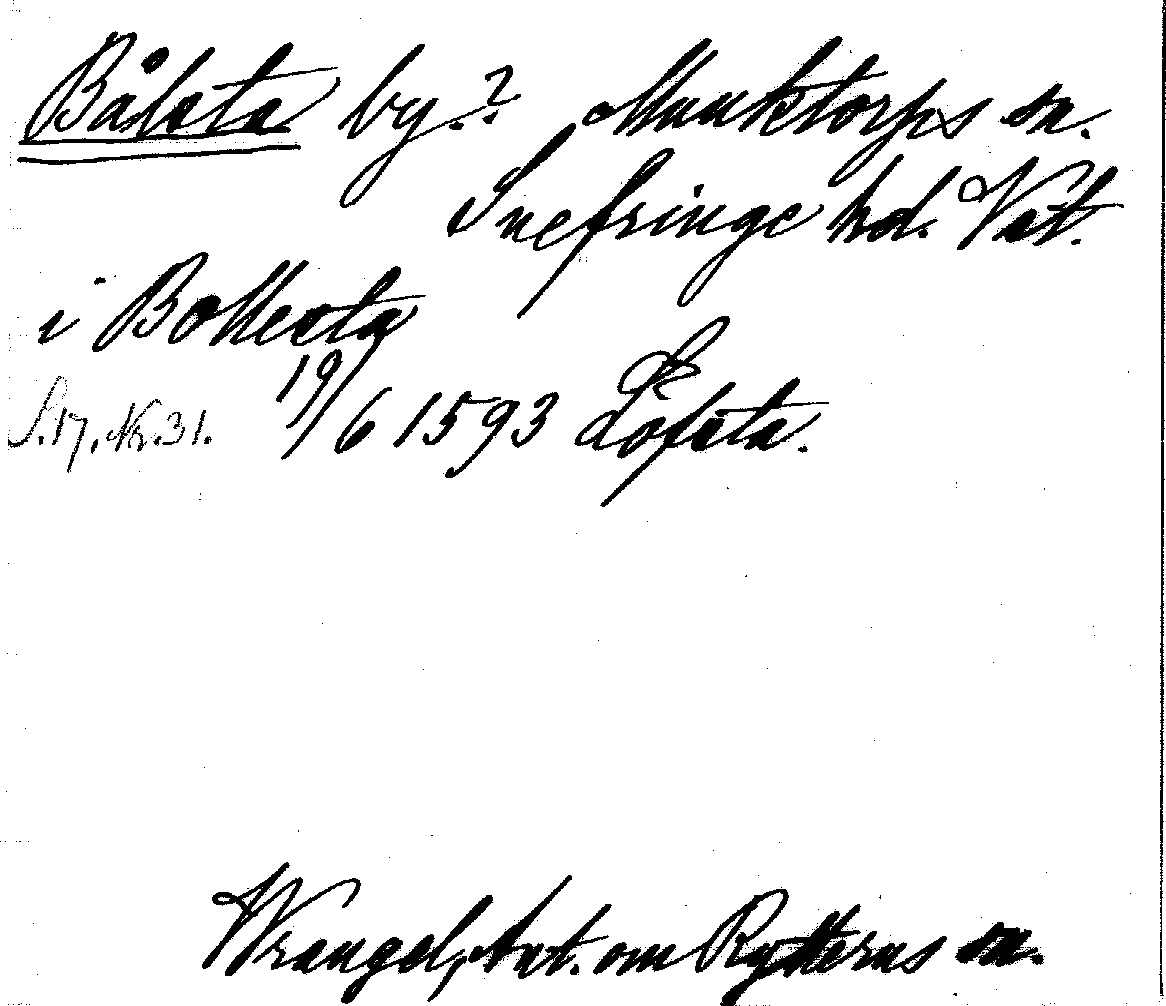 Bålsta by.? Munktorps sn.
Snefringe hd. Vst.
i Bollesta
S.17. Nr.31. 19/6 1593 Löfsta.
Wrangel, Ant. om Rytterns sn.